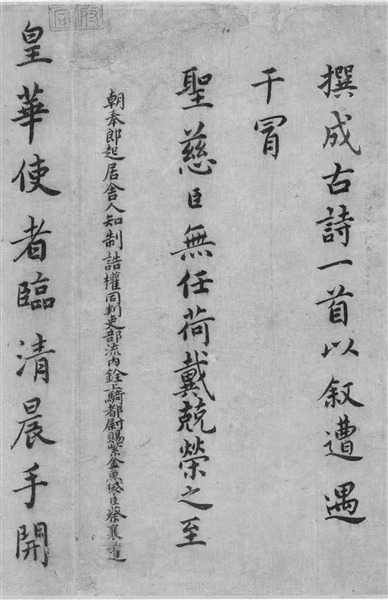 撰成古詩一首以叙遭遇
干冒
聖慈臣無任荷戴兢榮之至
朝奉郎起居舍人知制誥權同判吏部流内銓上騎都尉賜紫金魚袋臣蔡襄進
皇華使者臨清晨手開